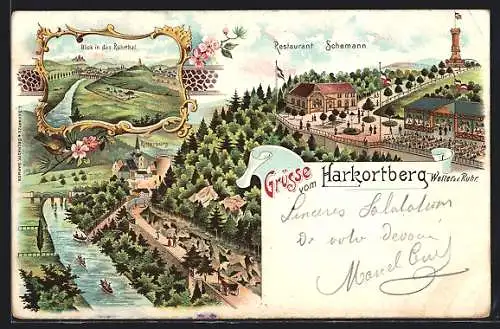 Blick in das Ruhrthal.
Restaurant Schemann
Ritterburg
Grüsse vom Harkortberg
Wetter a. Ruhr.
Sincères Salutations
De votre dévoué
Marcel